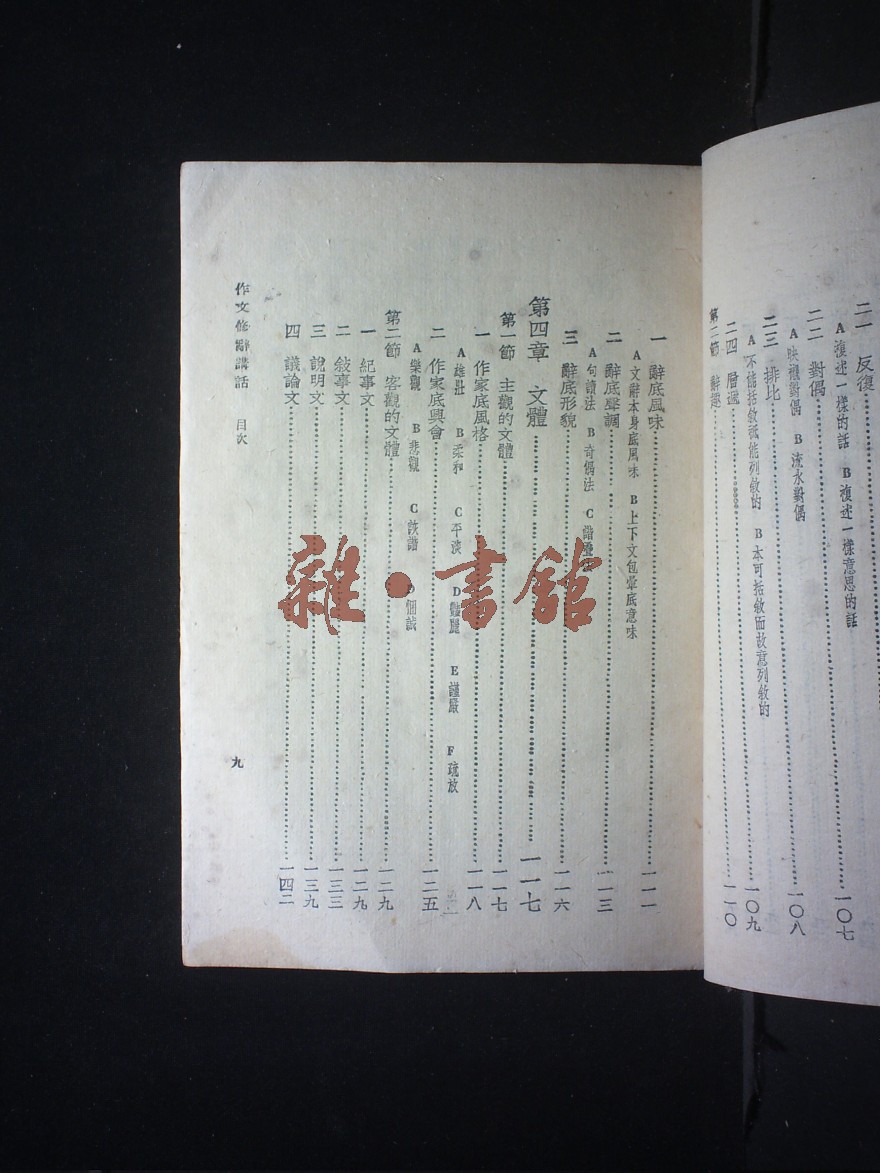 二一 反復
A 複述一樣的話 B 複述一樣意思的話
一〇七
二二 對偶
一〇八
A 映襯對偶 B 流水對偶
二三 排比
一〇九
A 不能括敘祇能列敘的 B 本可括敘而故意列敘的
二四 層遞
一一〇
第二節 辭趣
一 辭底風味
一一一
A 文辭本身底風味 B 上下文包暈底意味
二 辭底聲調
一一三
A 句讀法 B 奇偶法 C 諧
三 辭底形貌
一一六
第四章 文體
一一七
第一節 主觀的文體
一一七
一 作家底風格
一一八
A 雄壯 B 柔和 C 平淡 D 豔麗 E 謹嚴 F 疏放
二 作家底興會
一二五
A 樂觀 B 悲觀 C 詼諧 D
第二節 客觀的文體
一二九
一 紀事文
一二九
二 敍事文
一三三
三 說明文
一三九
四 議論文
一四二
作文修辭講話 目次
九
雜·書館